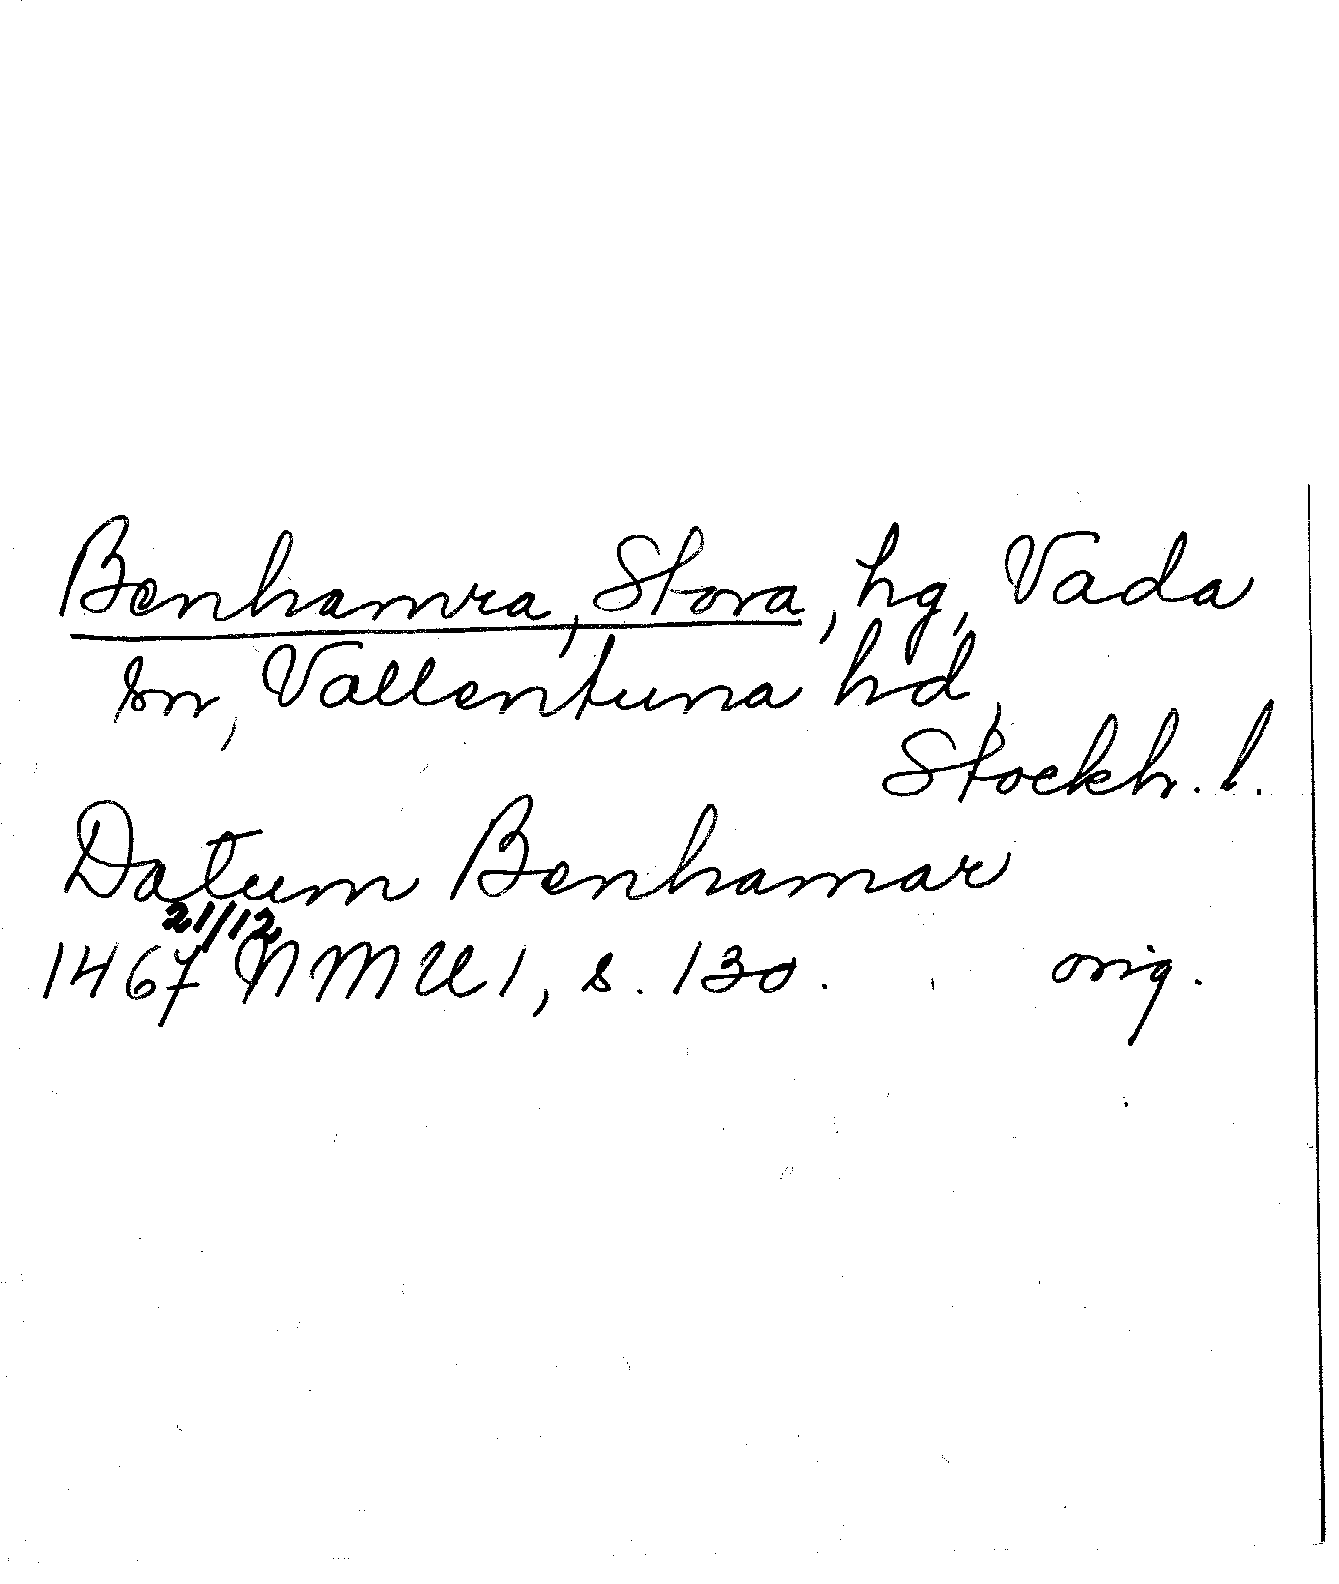 Benhamra, Stora, hg, Vada
sn, Vallentuna hd,
Stockh. l.
Datum Benhamar
21/12
1467 NMU1, s. 130. orig.